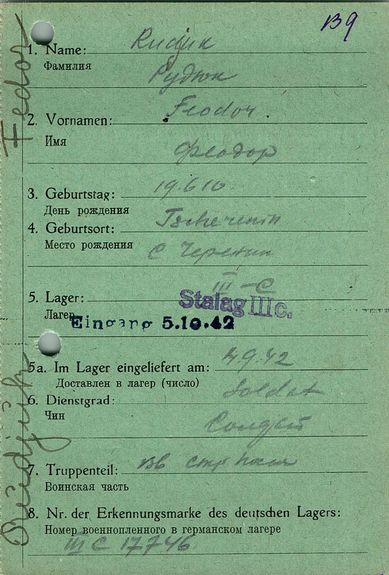 139
1. Name: Rudjuk
Фамилия Рудюк
2. Vornamen: Feodor
Имя Феодор
3. Geburtstag: 19.6.10
День рождения
4. Geburtsort: Tscherenin
Место рождения с Черенин
III-C
5. Lager: Stalag III c.
Лагерь
Eingang 5.10.42
5a. Im Lager eingeliefert am: 4.9.42
Доставлен в лагер (число)
6. Dienstgrad: Soldat
Чин Солдат
7. Truppenteil:
Воинская часть
8. Nr. der Erkennungsmarke des deutschen Lagers:
Номер военнопленного в германском лагере
III C 17746
Fedor